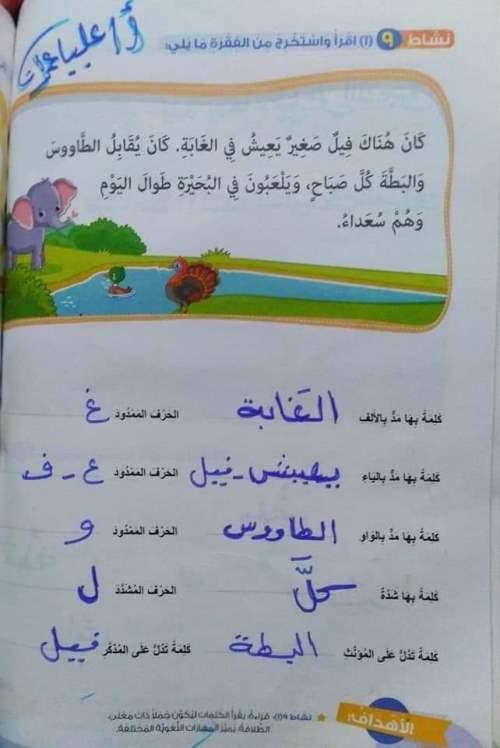 أ/ علياء
نشاط ٩ (أ) اقْرَأْ وَاسْتَخْرِجْ مِنَ الفِقْرَةِ مَا يَلِي:
كَانَ هُنَاكَ فِيلٌ صَغِيرٌ يَعِيشُ فِي الغَابَةِ. كَانَ يُقَابِلُ الطَّاووسَ
وَالبَطَّةَ كُلَّ صَبَاحٍ، وَيَلْعَبُونَ فِي البُحَيْرَةِ طَوالَ اليَوْمِ
وَهُمْ سُعَداءُ.
كَلِمَةٌ بِهَا مَدٌّ بِالأَلِفِ الغَابة الحَرْفَ المَمْدُودَ غ
كَلِمَةٌ بِهَا مَدٌّ بِاليَاءِ يعيش - فيل الحَرْفَ المَمْدُودَ ع - ف
كَلِمَةٌ بِهَا مَدٌّ بِالوَاوِ الطاووس الحَرْفَ المَمْدُودَ و
كَلِمَةٌ بِهَا شَدَّةٌ كلَّ الحَرْفَ المُشَدَّدَ ل
كَلِمَةٌ تَدُلُّ عَلَى المُؤَنَّثِ البطة كَلِمَةٌ تَدُلُّ عَلَى المُذَكَّرِ فيل
الأَهْدَافُ:
نشاط ٩ (أ): قراءة: يقرأ الكلمات ليكوّن جملًا ذات معنى.
الطلاقة: يميّز المهارات اللغويّة المختلفة.